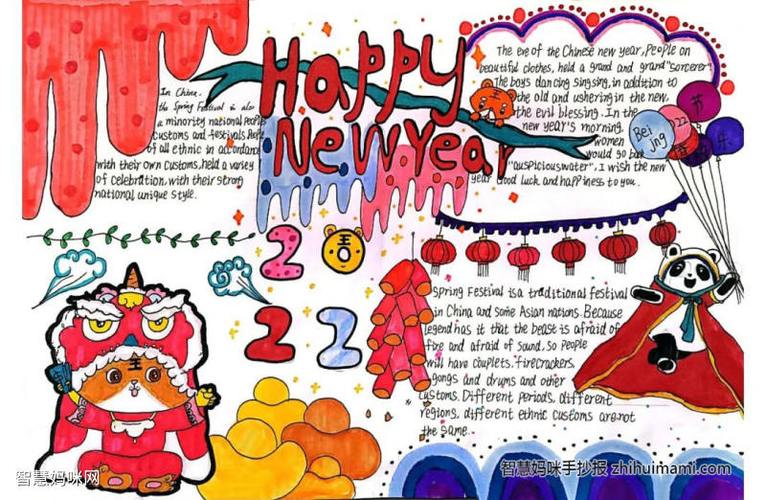 Happy
New Year
In China.
the Spring Festival is also
a minority national people
customs and festivals. People
of all ethnic in accordance
with their own customs, held a variety
of celebration, with their strong
national unique style.
The eve of the Chinese new year, People on
beautiful clothes, held a grand and grand "sorcerer".
The boys dancing singsing, in addition to
the old and ushering in the new,
the evil blessing. In the
new year's morning.
women
would go back
"auspicious water", I wish the new
year Good luck and happiness to you.
Bei
jing
22
节
2022
王
spring Festival is a traditional festival
in China and some Asian nations. Because
legend has it that the beast is afraid of
fire and afraid of sound, so People
will have couplets. firecrackers.
gongs and drums and other
customs. Different periods, different
regions, different ethnic customs are not
the same.
智慧妈咪网
智慧妈咪手抄报 zhihuimami.com